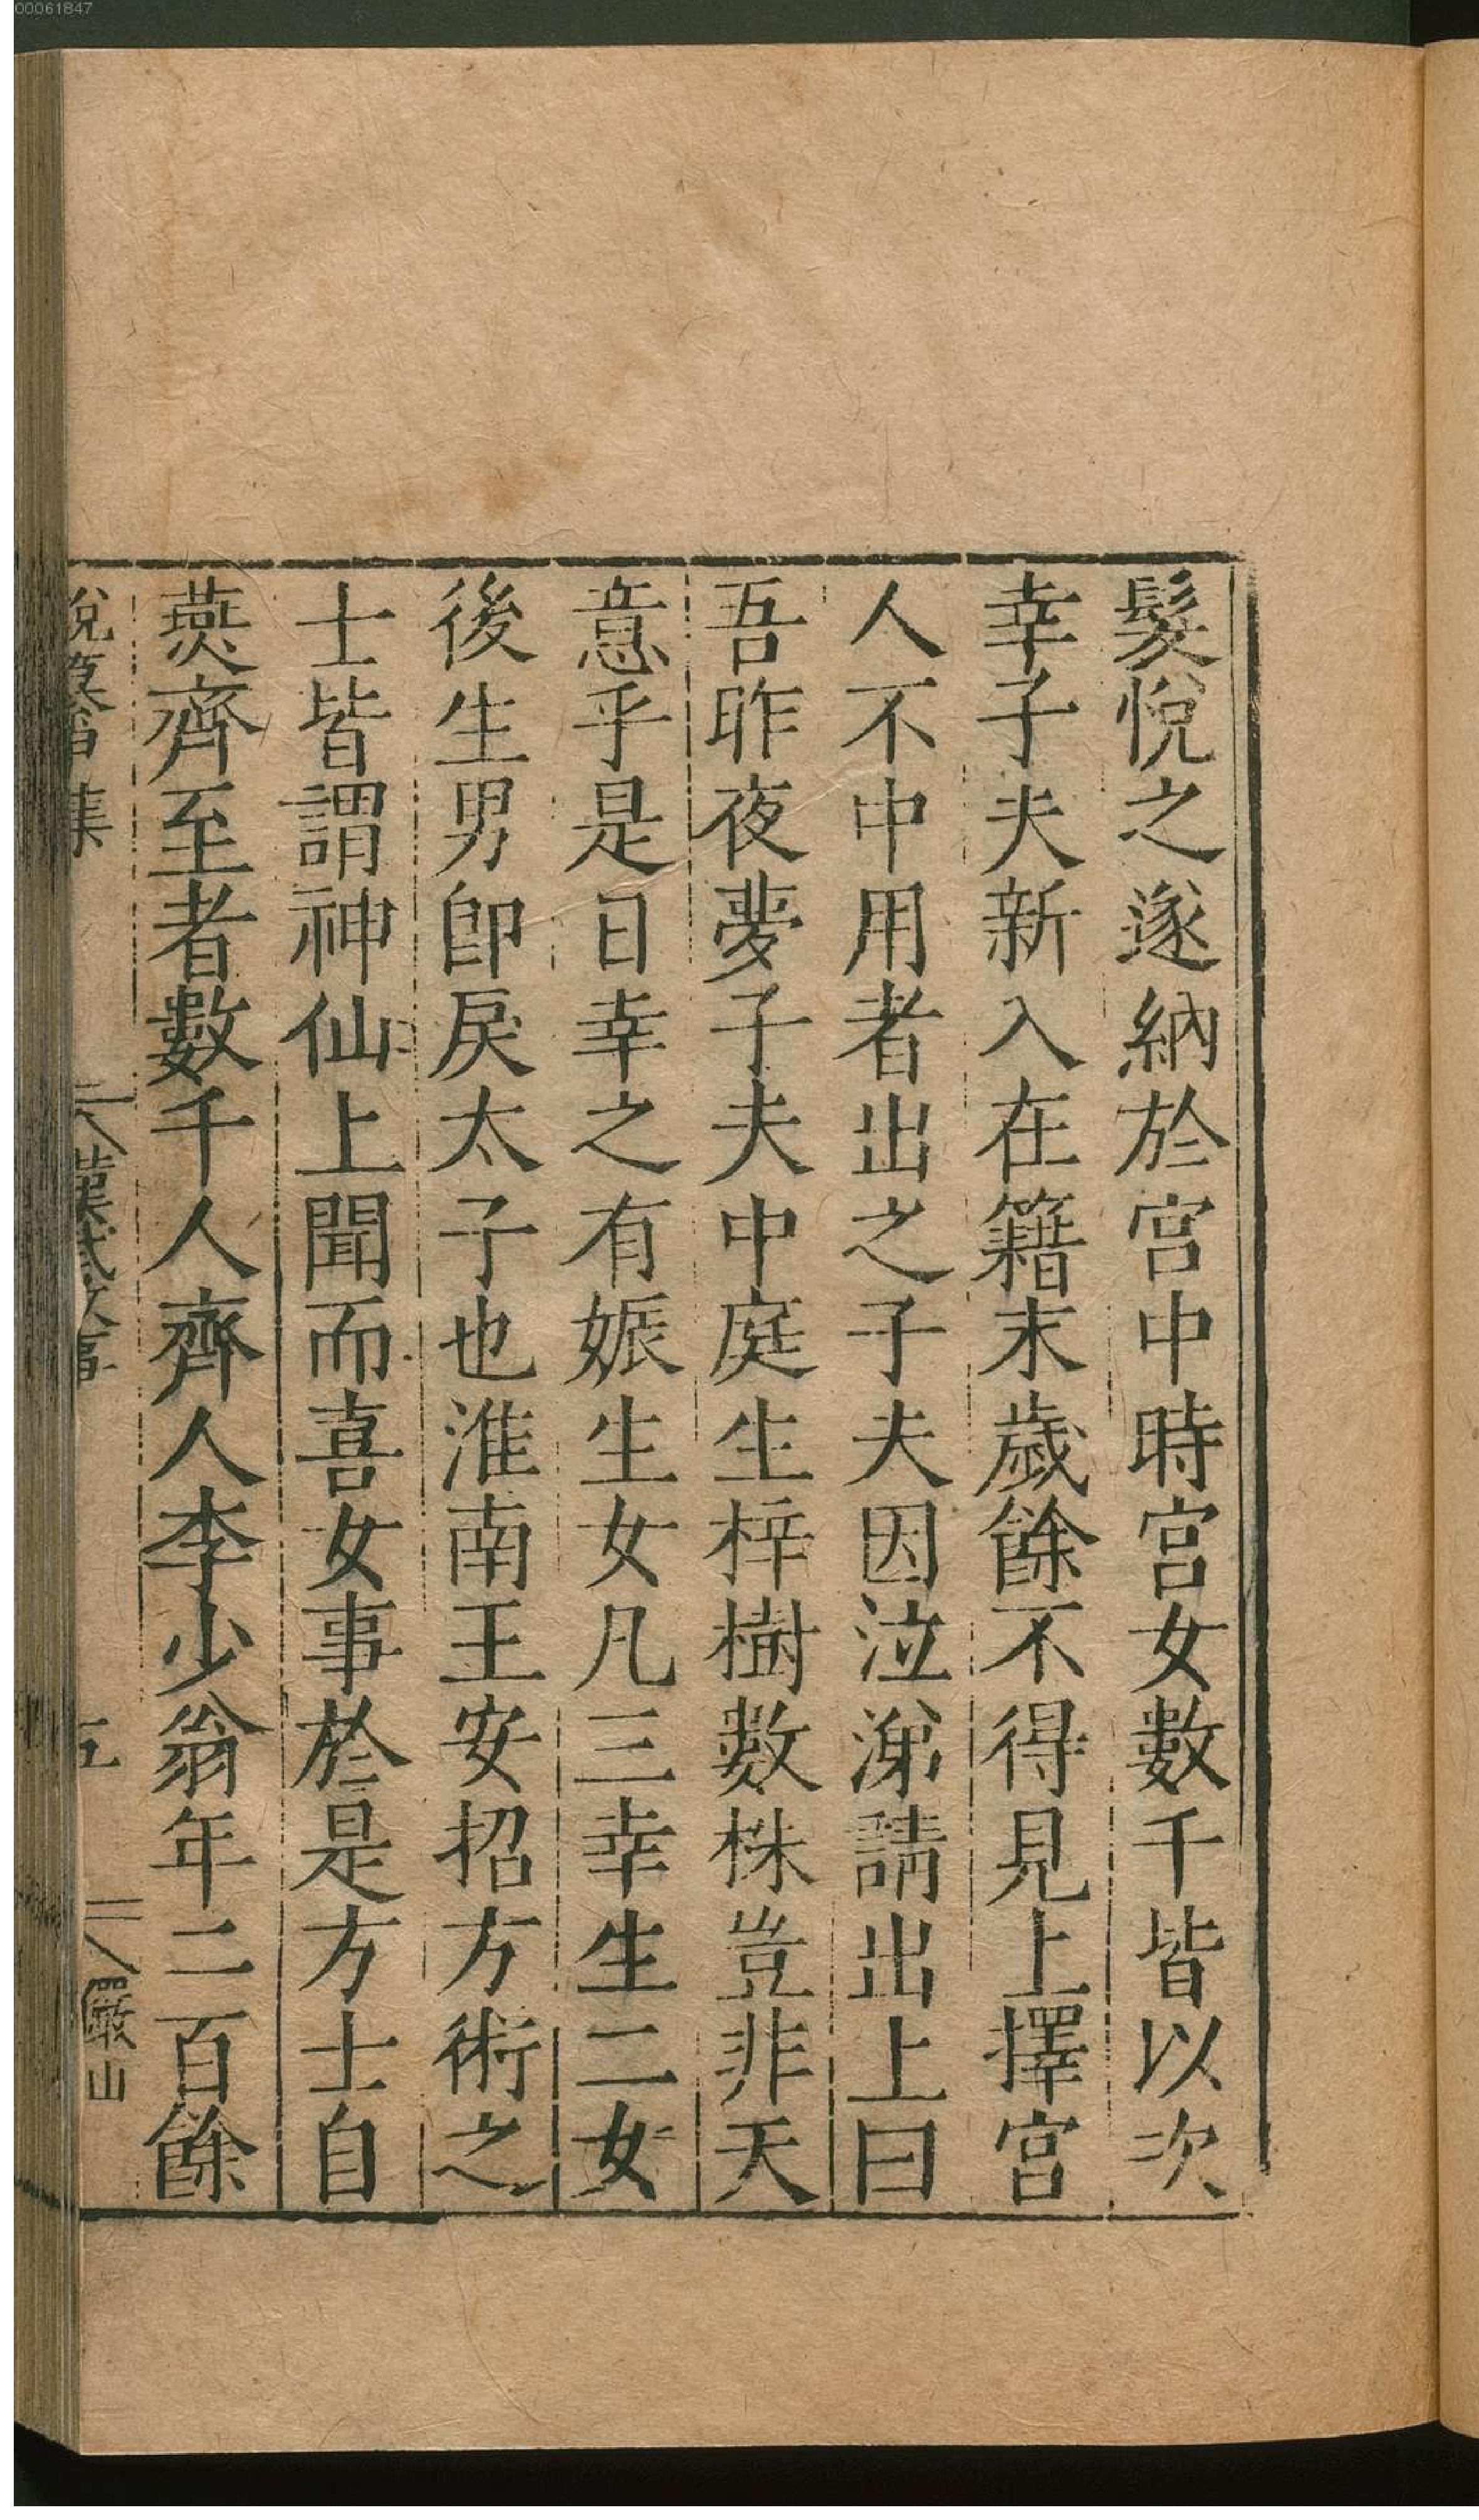 00061847
髮悅之遂納於宮中時宮女數千皆以次
幸子夫新入在籍末歲餘不得見上擇宮
人不中用者出之子夫因泣涕請出上曰
吾昨夜夢子夫中庭生梓樹數株豈非天
意乎是日幸之有娠生女凡三幸生二女
後生男卽戾太子也淮南王安招方術之
士皆謂神仙上聞而喜女事於是方士自
燕齊至者數千人齊人李少翁年二百餘
說纂 集 漢武故事 五 嚴山